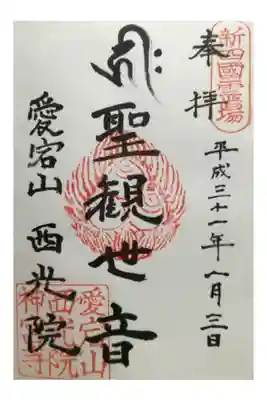 新四國霊場
奉拝
平成二十一年八月三日
聖観世音
愛宕山 西光院
愛宕山
西光院
神宮寺